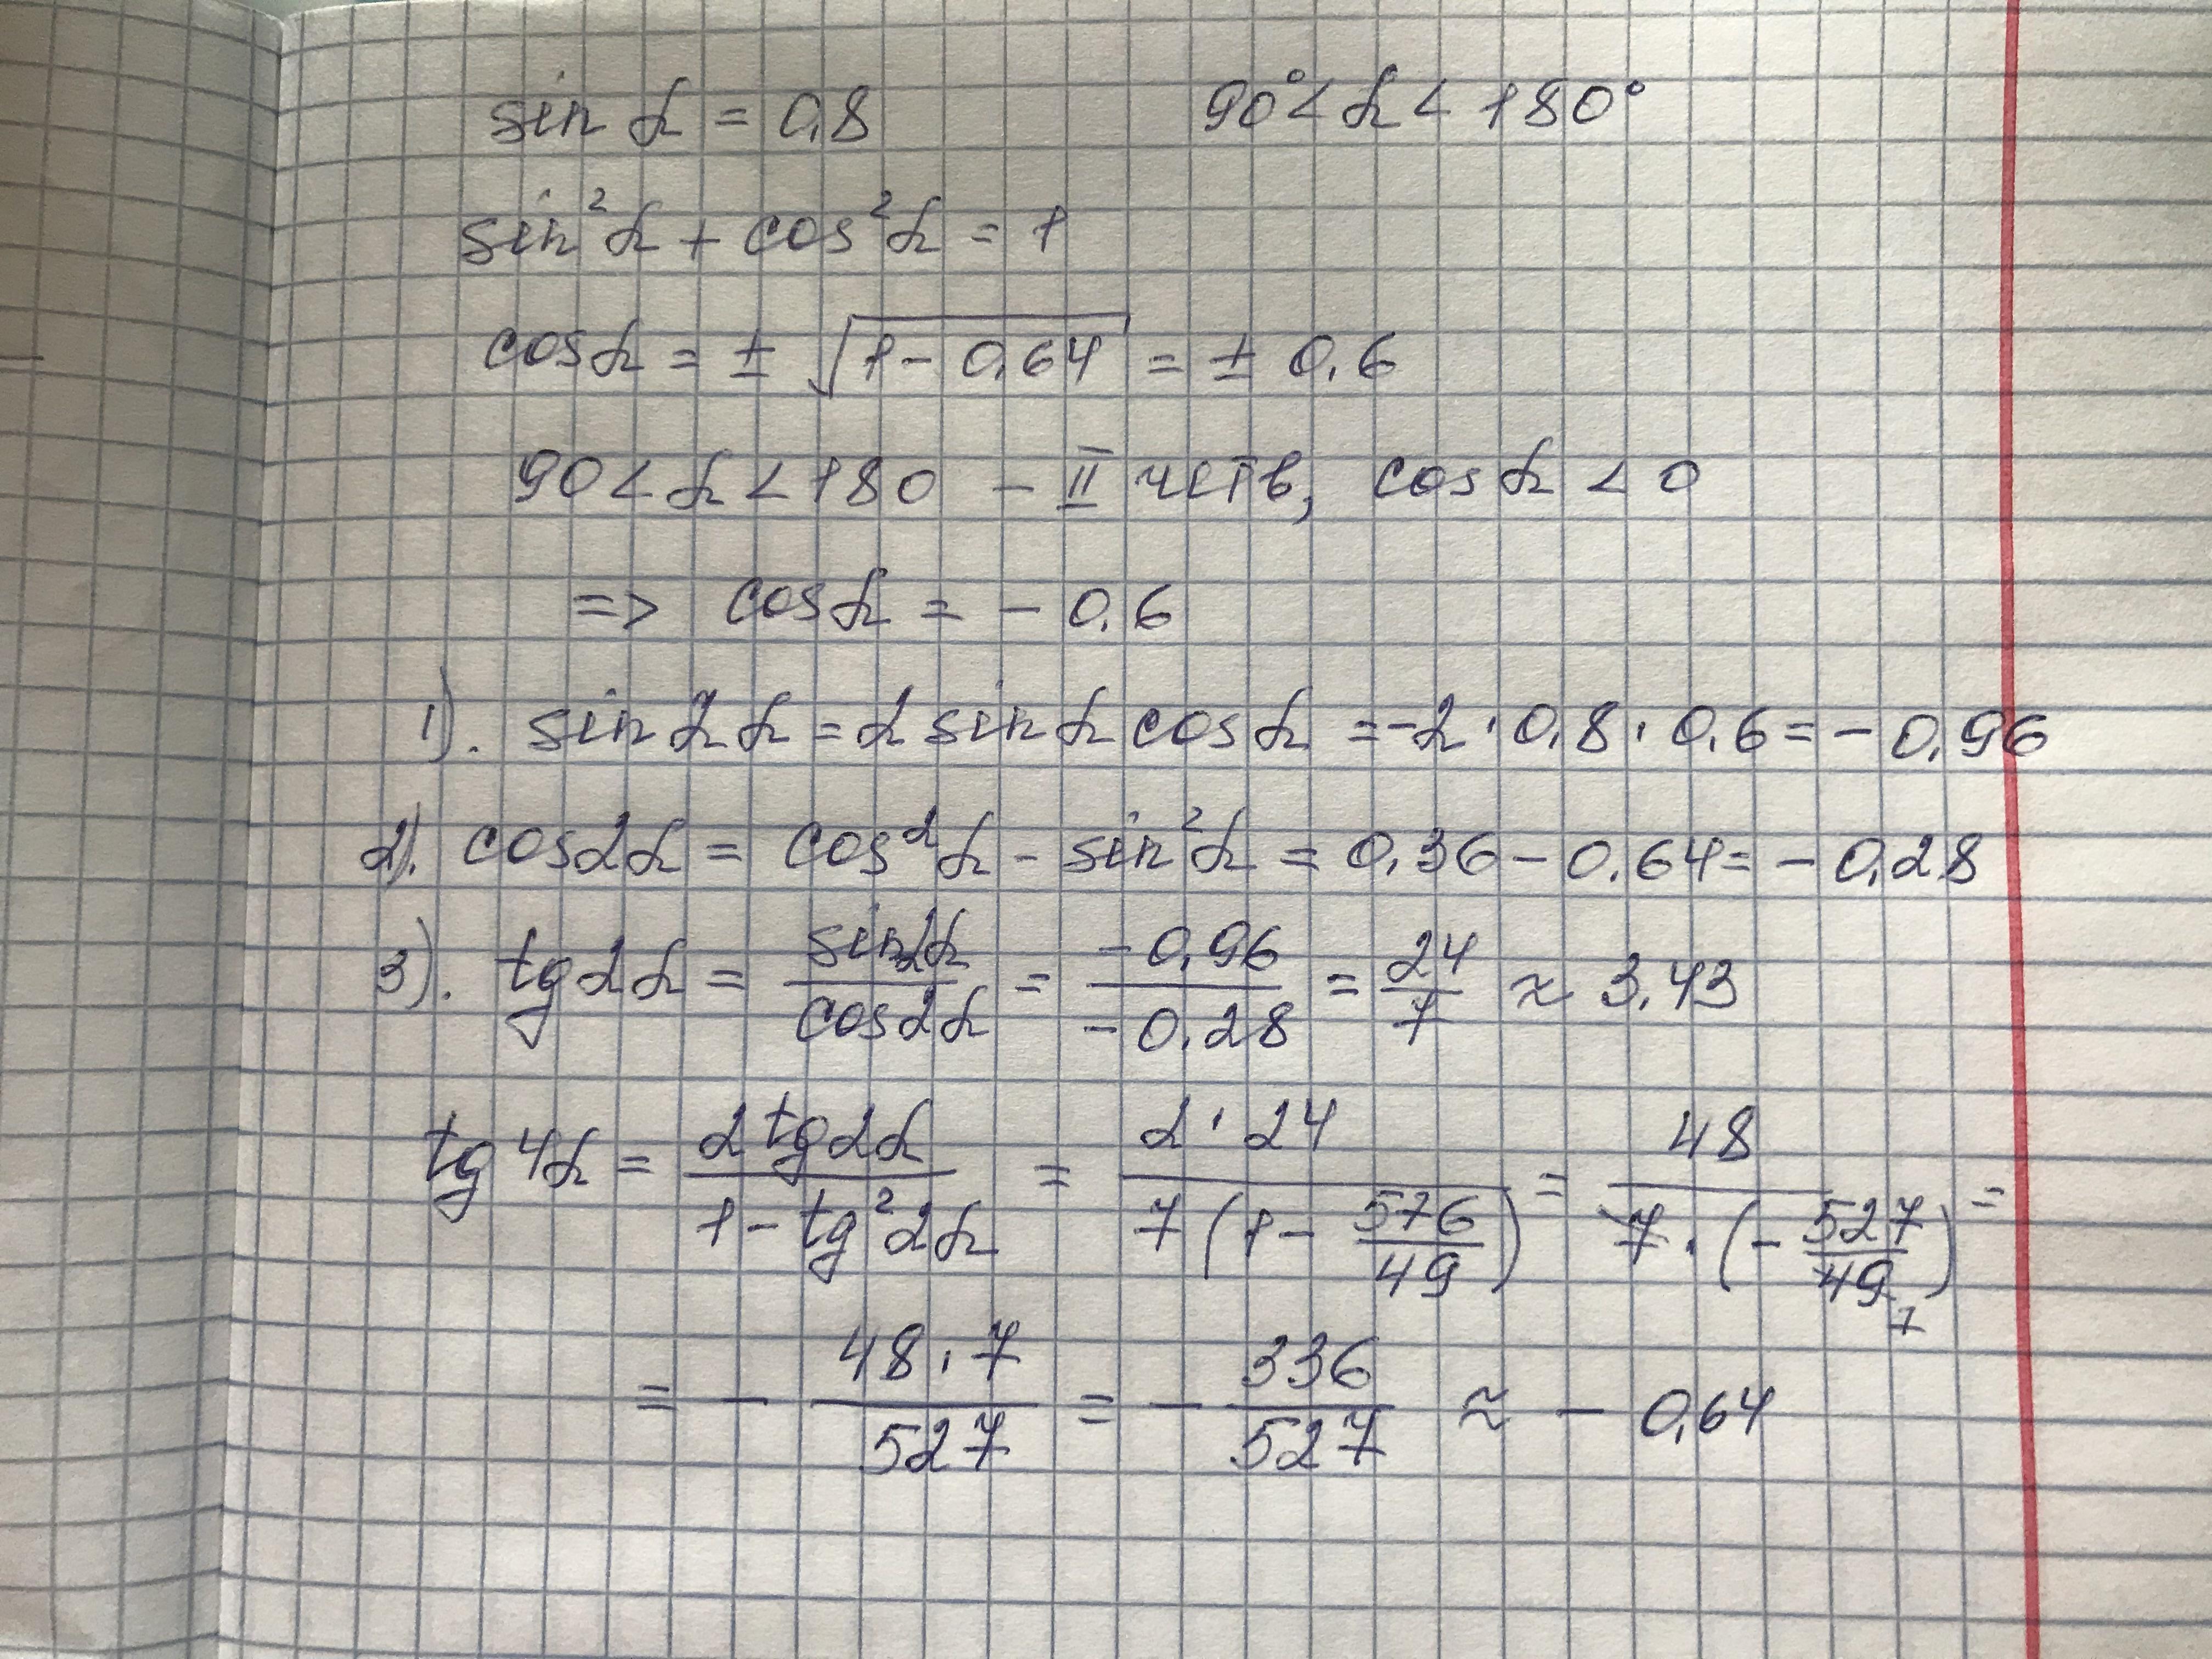 sin α = 0,8 90° < α < 180°
sin²α + cos²α = 1
cos α = ± √(1 - 0,64) = ± 0,6
90 < α < 180 - II четв, cos α < 0
=> cos α = - 0,6
1). sin 2α = 2 sin α cos α = -2 · 0,8 · 0,6 = - 0,96
2). cos 2α = cos²α - sin²α = 0,36 - 0,64 = - 0,28
3). tg 2α = sin2α/cos2α = -0,96/-0,28 = 24/7 ≈ 3,43
tg 4α = 2 tg 2α/(1 - tg²2α) = 2 · 24/(7 (1 - 576/49)) = 48/(7 · (- 527/49 7)) =
= - 48 · 7/527 = - 336/527 ≈ - 0,64